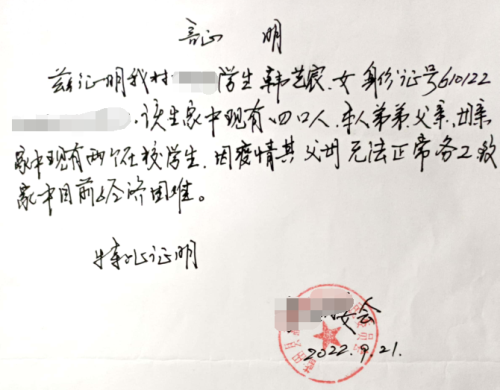 证 明
兹证明我村 学生韩艺宸、女 身份证号610122
,该生家中现有四口人、本人弟弟、父亲、母亲
家中现有两个在校学生、因疫情其父母无法正常务工致
家中目前经济困难。
特此证明
委会
2022.9.21.